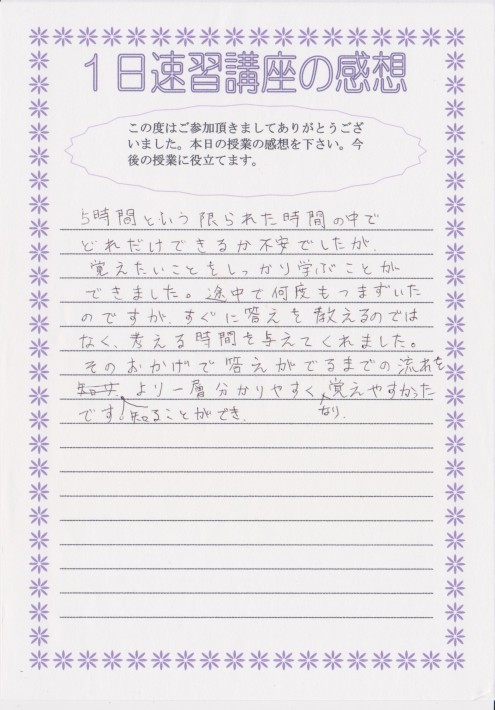 1日速習講座の感想
この度はご参加頂きましてありがとうござ
いました。本日の授業の感想を下さい。今
後の授業に役立てます。
5時間という限られた時間の中で
どれだけできるか不安でしたが、
覚えたいことをしっかり学ぶことが
できました。途中で何度もつまずいた
のですが、すぐに答えを教えるのでは
なく、考える時間を与えてくれました。
そのおかげで答えがでるまでの流れを
より一層分かりやすく覚えやすかった
です。知ることができ、
なり、